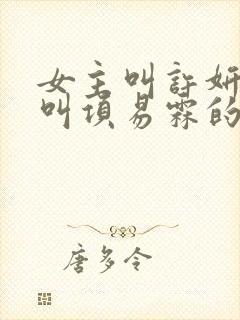 女主叫许妍
叫项易霖的
唐多令